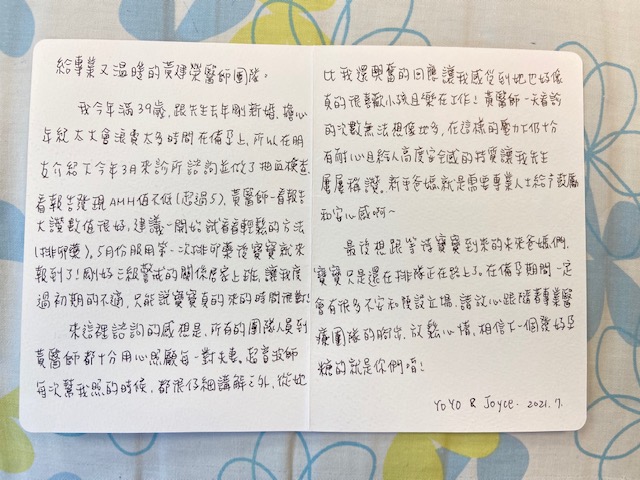 給專業又溫暖的黃建榮醫師團隊：
我今年滿39歲，跟先生去年剛新婚，擔心
年紀太大會浪費太多時間在備孕上，所以在朋
友介紹下今年3月來診所諮詢並做了抽血檢查，
看報告發現AMH值不低(超過5)，黃醫師一看報告
大讚數值很好，建議一開始試看看輕鬆的方法
(排卵藥)，5月份服用第一次排卵藥後寶寶就來
報到了！剛好三級警戒的關係居家上班，讓我度
過初期的不適，只能說寶寶真的來的時間很勤！
來這裡諮詢的感想是，所有的團隊人員到
黃醫師都十分用心照顧每一對夫妻，超音波師
每次幫我照的時候，都很仔細講解之外，從她
比我還興奮的回應讓我感受到她也好像
真的很喜歡小孩且樂在工作！黃醫師一天看診
的次數無法想像地多，在這樣的壓力下仍十分
有耐心且給人高度安全感的特質讓我先生
屢屢稱讚，新手爸媽就是需要專業人士給予鼓勵
和安心感啊～
最後想跟等待寶寶到來的未來爸媽們，
寶寶只是還在排隊正在路上了。在備孕期間一定
會有很多不安和預設立場，請放心跟隨著專業醫
療團隊的腳步，放鬆心情，相信下一個發好孕
糖的就是你們唷！
YOYO & Joyce. 2021.7.